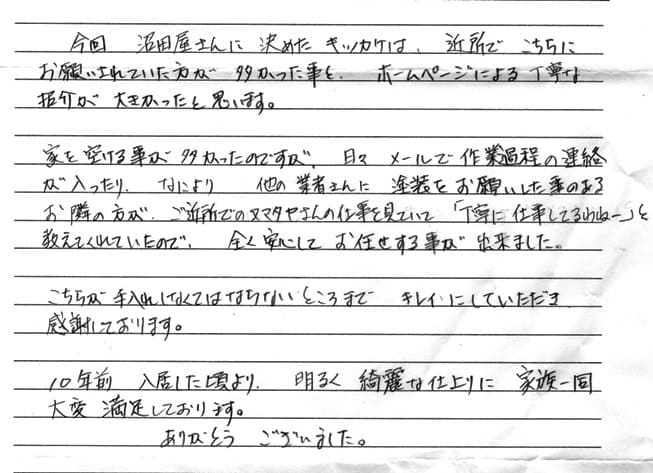 今回 沼田屋さんに 決めた キッカケは、近所で こちらに
お願いされていた方が 多かった事と、ホームページによる丁寧な
紹介が 大きかったと思います。
家を空ける事が多かったのですが、日々 メールで作業過程の連絡
が入ったり、なにより 他の業者さんに 塗装をお願いした事のある
お隣の方が、ご近所でのヌマタヤさんの仕事を見ていて「丁寧に仕事してるわねー」と
教えてくれていたので、全く安心して お任せする事が 出来ました。
こちらが手入れしなくてはならないところまで キレイにしていただき
感謝しております。
10年前 入居した頃より、明るく 綺麗な仕上りに 家族一同
大変 満足しております。
ありがとう ございました。